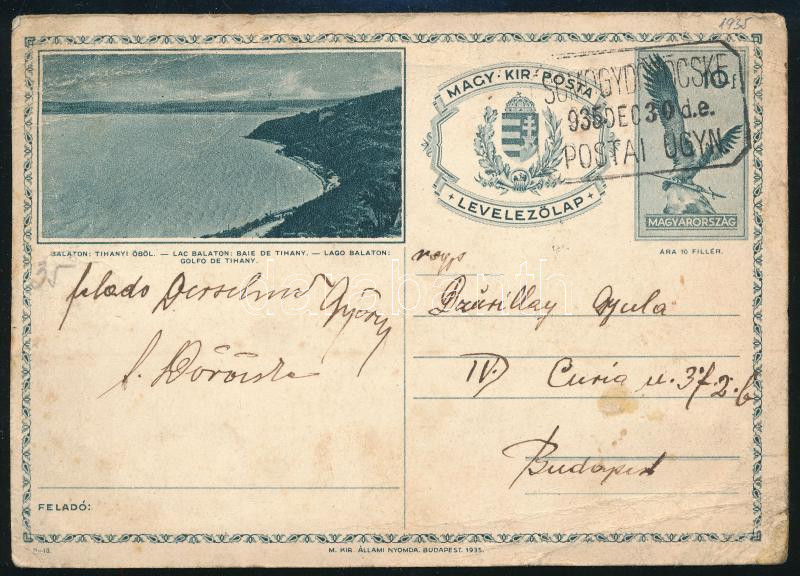 1935
MAGY · KIR · POSTA
LEVELEZŐLAP
SOMOGYDÖRÖCSKE
935DEC30 d.e.
POSTAI ÜGYN.
10f
MAGYARORSZÁG
ÁRA 10 FILLÉR.
BALATON: TIHANYI ÖBÖL. — LAC BALATON: BAIE DE TIHANY. — LAGO BALATON:
GOLFO DE TIHANY.
35
György
Gyula
IV) Curia u. 3 f. 2. 6
Budapest
FELADÓ:
M. KIR. ÁLLAMI NYOMDA. BUDAPEST. 1935.
darabanth